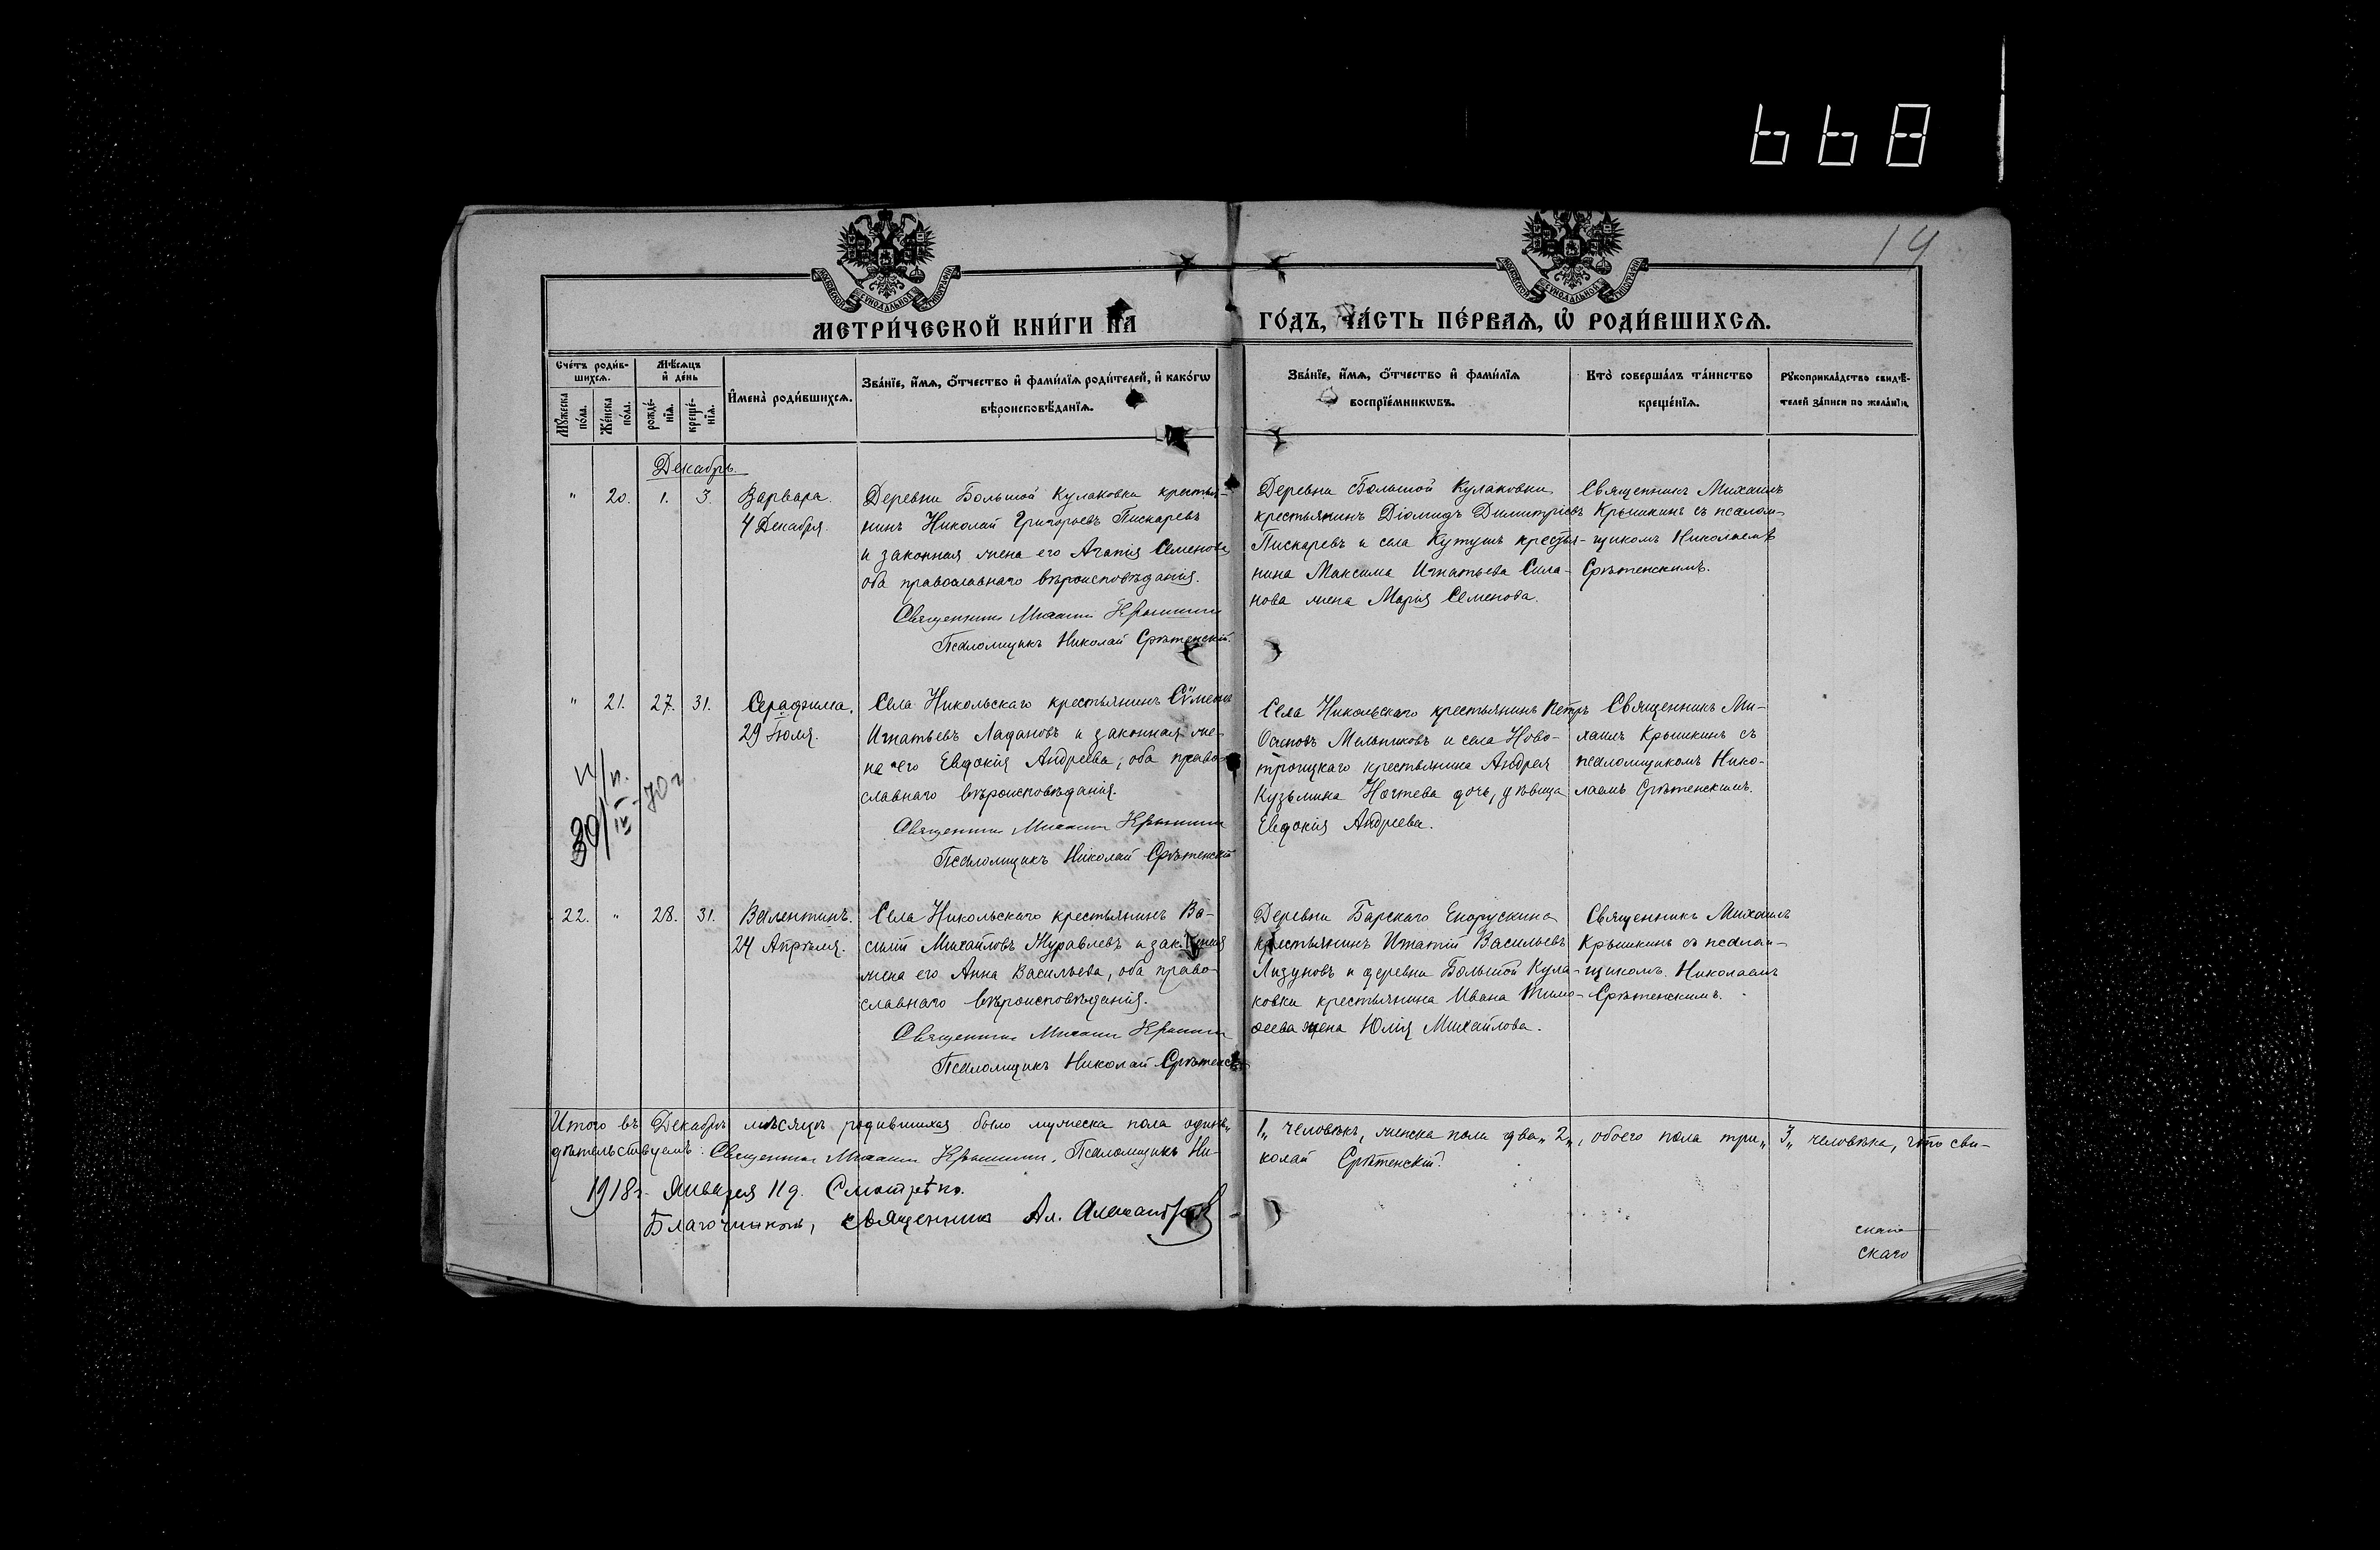 668
14
МОСКОВСКОЙ СѴНОДАЛЬНОЙ ТИПОГРАФІИ
МОСКОВСКОЙ СѴНОДАЛЬНОЙ ТИПОГРАФІИ
МЕТРИ́ЧЕСКОЙ КНИ́ГИ НА ГО́ДЪ, ЧА́СТЬ ПЕ́РВАѦ, Ѽ РОДИ́ВШИХСѦ.
Сче́тъ роди́в-
шихсѧ.
Мѣ́сѧцъ
и҆ де́нь
Мꙋ́жеска по́ла.
Же́нска по́ла.
рожде́-нїѧ.
креще́-нїѧ.
И҆мена̀ роди́вшихсѧ.
Зва́нїе, и҆́мѧ, ѻ҆́тчество и҆ фами́лїѧ роди́телей, и҆ како́гѡ
вѣроисповѣ́данїѧ.
Зва́нїе, и҆́мѧ, ѻ҆́тчество и҆ фами́лїѧ
воспрїе́мникѡвъ.
Кто̀ соверша́лъ та́инство
креще́нїѧ.
Рꙋкоприкла́дство свидѣ́-
телей за́писи по жела́нїю.
Декабрь.
" 20. 1. 3.
Варвара.
4 Декабря.
Деревни Большой Кулаковки крестья-
нинъ Николай Григорьевъ Пискаревъ
и законная жена его Агапія Семенова
оба православнаго вѣроисповѣданія.
Священникъ Михаилъ Крышкинъ
Псаломщикъ Николай Срѣтенскій.
Деревни Большой Кулаковки
крестьянинъ Діомидъ Димитріевъ
Пискаревъ и села Кутушъ крестья-
нина Максима Игнатьева Сила-
нова жена Марія Семенова.
Священникъ Михаилъ
Крышкинъ съ псалом-
щикомъ Николаемъ
Срѣтенскимъ.
" 21. 27. 31.
Серафима.
29 Іюля.
Села Никольскаго крестьянинъ Сѵмеонъ
Игнатьевъ Ладановъ и законная же-
на его Евдокія Андреева, оба право-
славнаго вѣроисповѣданія.
Священникъ Михаилъ Крышкинъ
Псаломщикъ Николай Срѣтенскій
Села Никольскаго крестьянинъ Петръ
Осиповъ Мельниковъ и села Ново-
троицкаго крестьянина Андрея
Кузьмина Ногтева дочь, дѣвица
Евдокія Андреева.
Священникъ Ми-
хаилъ Крышкинъ съ
псаломщикомъ Нико-
лаемъ Срѣтенскимъ.
30/IV-70г
22. " 28. 31.
Валентинъ.
24 Апрѣля.
Села Никольскаго крестьянинъ Ва-
силій Михайловъ Журавлевъ и законная
жена его Анна Васильева, оба право-
славнаго вѣроисповѣданія.
Священникъ Михаилъ Крышкинъ
Псаломщикъ Николай Срѣтенскій
Деревни Барскаго Енорускина
крестьянинъ Игнатій Васильевъ
Лизуновъ и деревни Большой Кула-
ковки крестьянина Ивана Тимо-
ѳеева жена Юлія Михайлова.
Священникъ Михаилъ
Крышкинъ съ псалом-
щикомъ Николаемъ
Срѣтенскимъ.
Итого въ Декабрѣ мѣсяцѣ родившихся было мужеска пола одинъ„ 1„ человѣкъ, женска пола два„ 2„, обоего пола три„ 3„ человѣка, что сви-
дѣтельствуемъ: Священникъ Михаилъ Крышкинъ. Псаломщикъ Ни-колай Срѣтенскій.
1918г. Января 11 д. Смотрѣно.
Благочинный, священникъ Ал. Александровъ
скаго
скаго